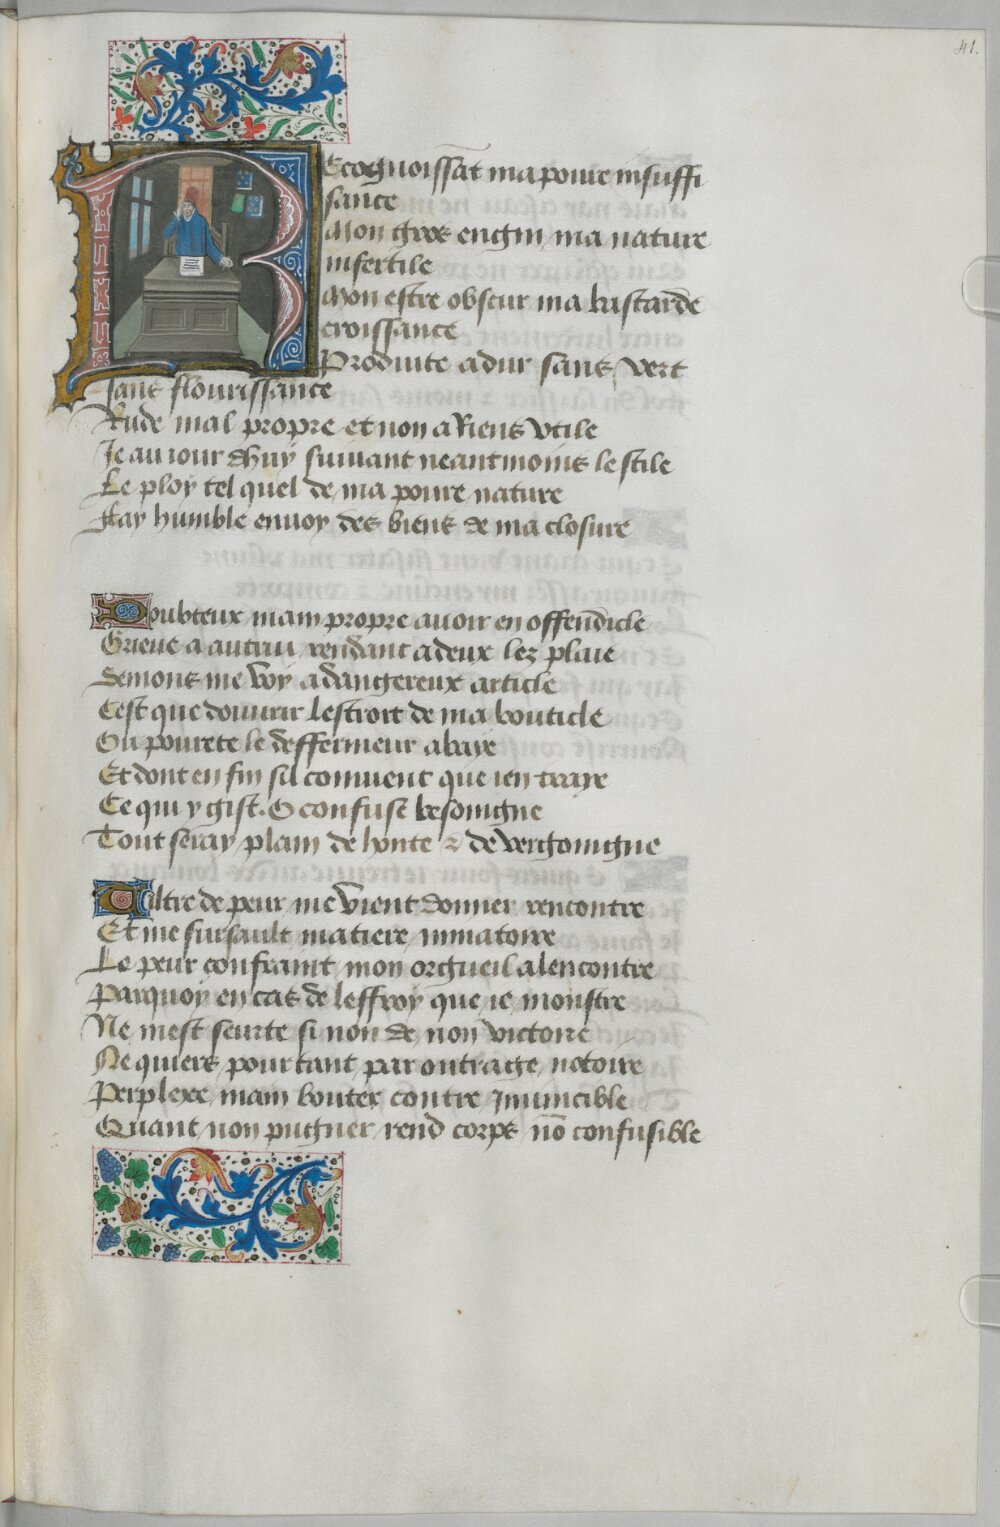 41.
Recognoissãt ma poure insuffi
sance
Mon gros engin ma nature
infertile
Mon estre obscur ma bastarde
croissance
Produite a dur sans vert
sans flourissance
Rude mal propre et non a Riens vtile
Je au iour dhuy suiuant neantmoins le stile
Le ploy tel quel de ma poure nature
Fay humble enuoy des biens de ma closure
Doubteux main propre auoir en offendicle
Grieue a autrui rendant a deux lez plaie
Semons me voy a dangereux article
Cest que douurir lestroit de ma bouticle
Ou pourete le deffermeur abaye
Et dont en fin sil conuient que ien traye
Ce qui y gist. O confuse besoingne
Tout seray plain de honte & de vergoingne
Aultre de peur me vient donner rencontre
Et me sursault matiere minatoire
Le peur confraint mon orgueil alencontre
Parquoy en cas de leffroy que ie monstre
Ne mest seurte si non de non victoire
Ne quiers pourtant par oultrage notoire
Perplexe main bouter contre Jnuincible
Quant non pugner rend corps nõ confusible